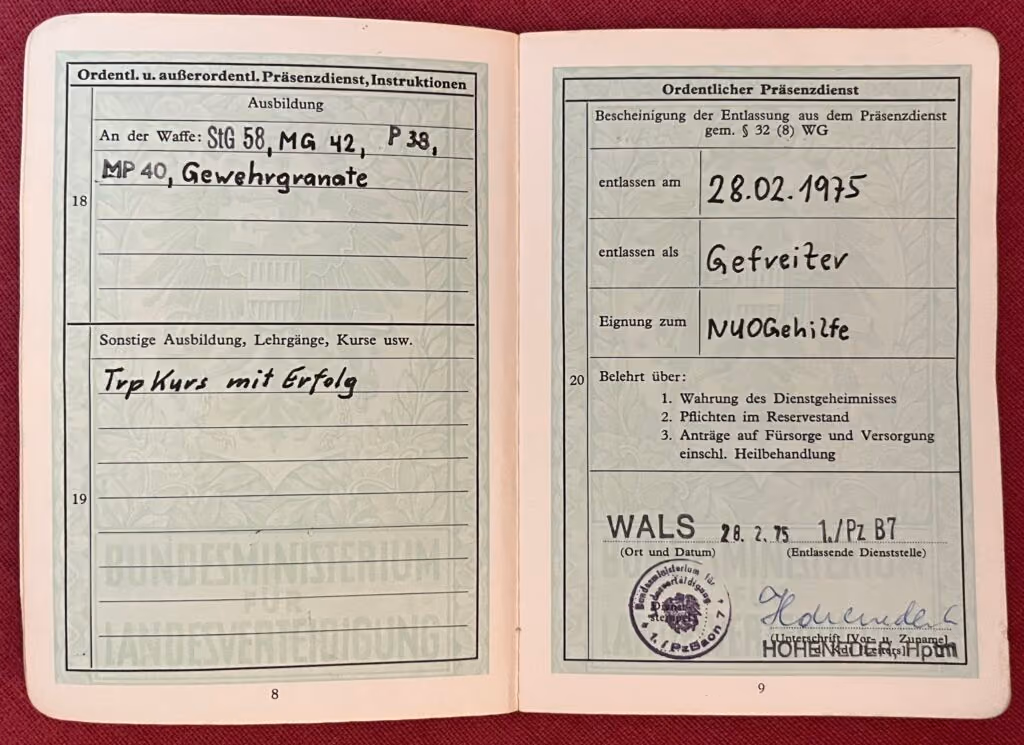 Ordentl. u. außerordentl. Präsenzdienst, Instruktionen
Ausbildung
An der Waffe: StG 58, MG 42, P 38,
MP 40, Gewehrgranate
18
Sonstige Ausbildung, Lehrgänge, Kurse usw.
Trp Kurs mit Erfolg
19
BUNDESMINISTERIUM
FÜR
LANDESVERTEIDIGUNG
8
Ordentlicher Präsenzdienst
Bescheinigung der Entlassung aus dem Präsenzdienst
gem. § 32 (8) WG
entlassen am 28.02.1975
entlassen als Gefreiter
Eignung zum NUOGehilfe
20 Belehrt über:
1. Wahrung des Dienstgeheimnisses
2. Pflichten im Reservestand
3. Anträge auf Fürsorge und Versorgung
einschl. Heilbehandlung
WALS 28. 2. 75 1./Pz B7
(Ort und Datum) (Entlassende Dienststelle)
Bundesministerium für
Landesverteidigung
Dienst-
stempel
1./PzBaon 7
(Unterschrift [Vor- u. Zuname]
d. Kdt. [Leiters])
Hptm
9